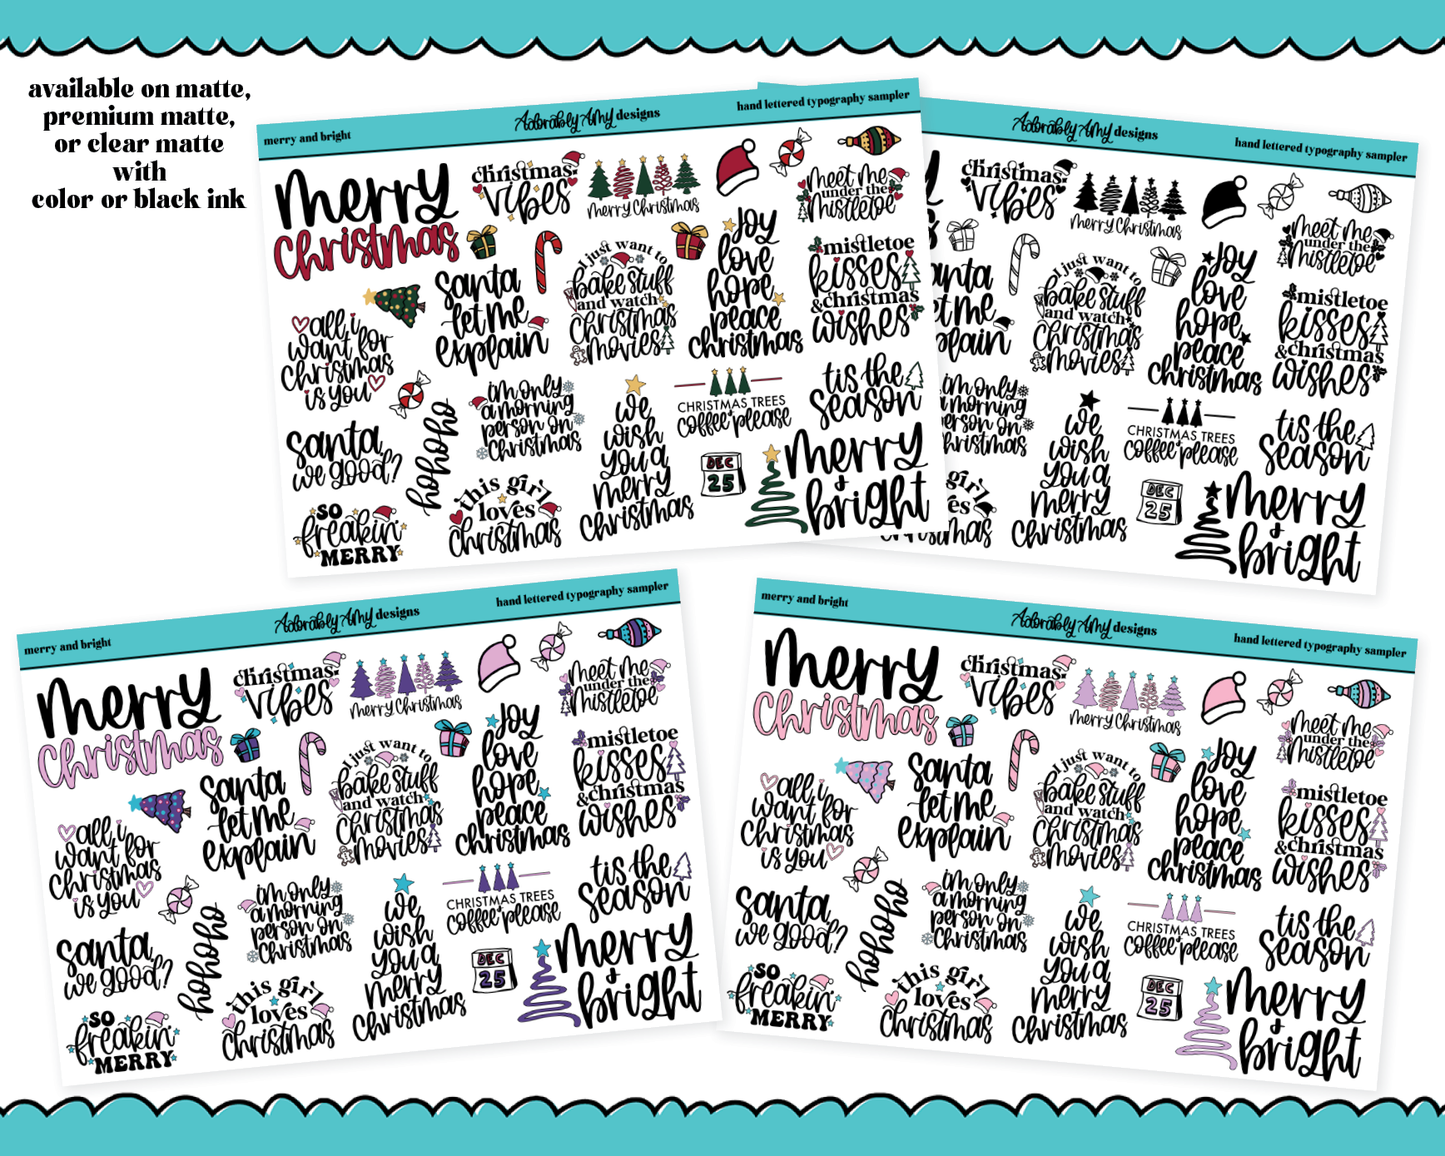 available on matte,
premium matte,
or clear matte
with
color or black ink
merry and bright
Adorably Amy designs
hand lettered typography sampler
merry
christmas
christmas
vibes
Merry Christmas
meet me
under the
mistletoe
all i
want for
christmas
is you
santa
let me
explain
i just want to
bake stuff
and watch
christmas
movies
joy
love
hope
peace
christmas
mistletoe
kisses
&christmas
wishes
santa
we good?
hohoho
i'm only
a morning
person on
christmas
we
wish
you a
merry
christmas
CHRISTMAS TREES
coffee please
tis the
season
so
freakin'
MERRY
this girl
loves
christmas
DEC
25
merry
&
bright
Adorably Amy designs
hand lettered typography sampler
christmas
vibes
Merry Christmas
meet me
under the
mistletoe
i just want to
bake stuff
and watch
christmas
movies
joy
love
hope
peace
christmas
mistletoe
kisses
&christmas
wishes
i'm only
a morning
person on
christmas
we
wish
you a
merry
christmas
CHRISTMAS TREES
coffee please
tis the
season
loves
christmas
DEC
25
merry
&
bright
merry and bright
Adorably Amy designs
hand lettered typography sampler
merry
christmas
christmas
vibes
Merry Christmas
meet me
under the
mistletoe
all i
want for
christmas
is you
santa
let me
explain
i just want to
bake stuff
and watch
christmas
movies
joy
love
hope
peace
christmas
mistletoe
kisses
&christmas
wishes
santa
we good?
hohoho
i'm only
a morning
person on
christmas
we
wish
you a
merry
christmas
CHRISTMAS TREES
coffee please
tis the
season
so
freakin'
MERRY
this girl
loves
christmas
DEC
25
merry
&
bright
merry and bright
Adorably Amy designs
hand lettered typography sampler
merry
christmas
christmas
vibes
Merry Christmas
meet me
under the
mistletoe
all i
want for
christmas
is you
santa
let me
explain
i just want to
bake stuff
and watch
christmas
movies
joy
love
hope
peace
christmas
mistletoe
kisses
&christmas
wishes
santa
we good?
hohoho
i'm only
a morning
person on
christmas
we
wish
you a
merry
christmas
CHRISTMAS TREES
coffee please
tis the
season
so
freakin'
MERRY
this girl
loves
christmas
DEC
25
merry
&
bright